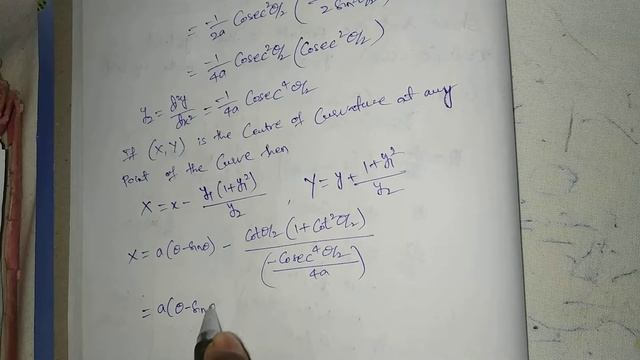 = -1/2a Cosec²θ/2 (
= -1/4a Cosec²θ/2 (Cosec²θ/2)
y₂ = d²y/dx² = -1/4a Cosec⁴θ/2
If (X,Y) is the Centre of Curvature at any
point of the Curve then
X = x - y₁(1+y₁²)/y₂ , Y = y + 1+y₁²/y₂
X = a(θ-sinθ) - Cotθ/2 (1+Cot²θ/2)/(-Cosec⁴θ/2/4a)
= a(θ-sinθ